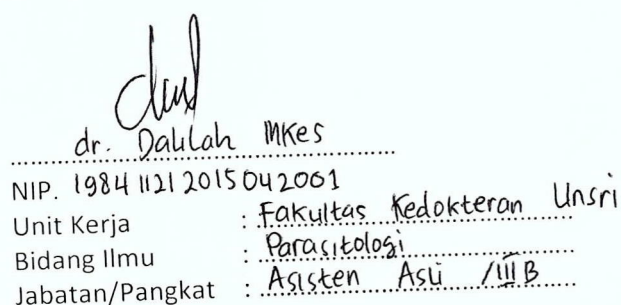 dr. Dalilah MKes
NIP. 198411212015042001
Unit Kerja : Fakultas Kedokteran Unsri
Bidang Ilmu : Parasitologi
Jabatan/Pangkat : Asisten Asli /III B